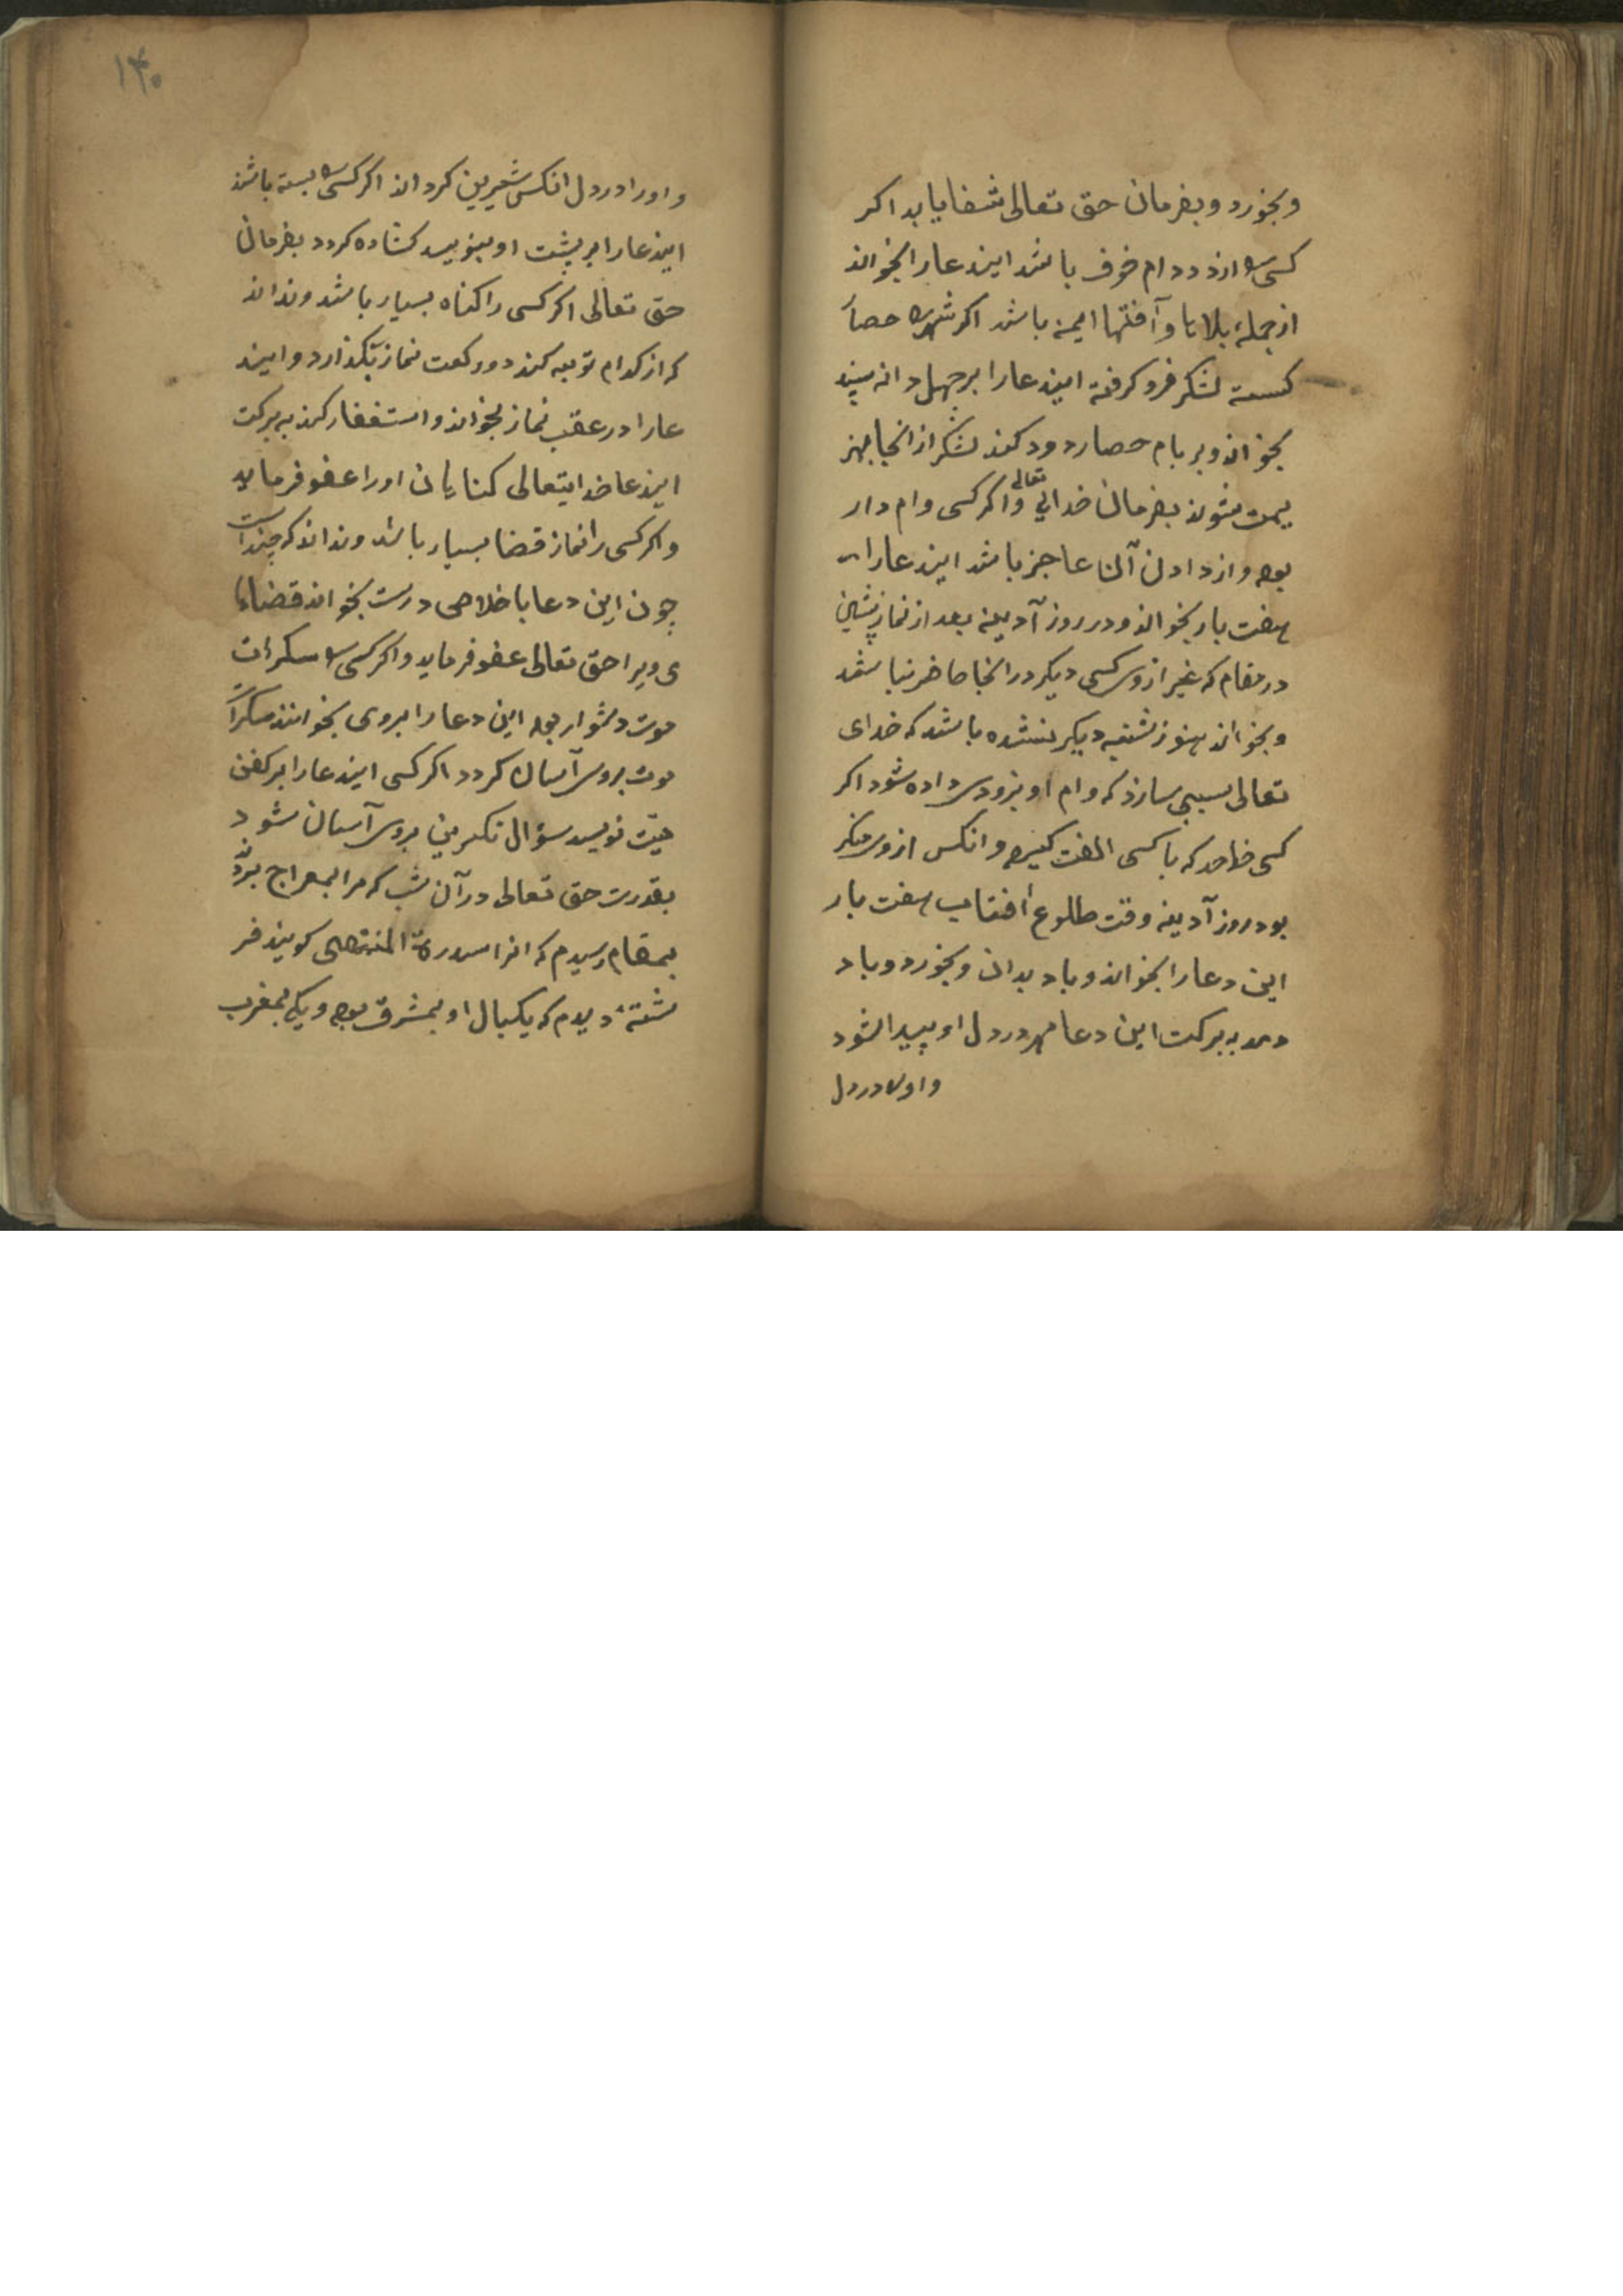 وبخورد و بفرمان حق تعالی شفا یابد اکر
کسی را از دد و دام خوف باشد ایندعا را بخواند
از جملهٔ بلاها و آفتها ایمن باشد اکر شهری را حصار
لشکر فرو کرفته ایندعا را بر چهل دانه
بخواند و بر بام حصار دود کند لشکر از انجا هز
یمت شوند بفرمان خدای تعالی و اکر کسی وام دار
بود و از دادن آن عاجز باشد ایندعا را
هفت بار بخواند و در روز آدینه بعد از نماز پیشین
در مقام که غیر از وی کسی دیکر در انجا حاضر نباشد
و بخواند هنوز دیکر نشده باشد که خدای
تعالی سببی سازد که وام او بزودی داده شود اکر
کسی خواهد که با کسی الفت کیرد و انکس از وی منکر
بود روز آدینه وقت طلوع آفتاب هفت بار
این دعا را بخواند و باد بدان و بخورد و باد
دهد به برکت این دعا مهر در دل او پیدا شود
و او را در دل
۱۴۰
و او را در دل انکس شیرین کرداند اکر کسی را بسته باشند
ایندعا را بر پشت او بنویسد کشاده کردد بفرمان
حق تعالی اکر کسی را کناه بسیار باشد و نداند
که از کدام توبه کند دو رکعت نماز بکذارد و ایند
عا را در عقب نماز بخواند و استغفار کند به برکت
ایندعا خدایتعالی کناهان او را عفو فرماید
و اکر کسی را نماز قضا بسیار باشد و نداند که چند است
چون این دعا با خلاصی درست بخواند قضاها
ی ویرا حق تعالی عفو فرماید و اکر کسی را سکرات
موت دشوار بود این دعا را بروی بخوانند سکرات
موت بروی آسان کردد اکر کسی ایندعا را بر کفن
میّت نویسد سؤال نکیرین بروی آسان شود
بقدرت حق تعالی در آن شب که مرا بمعراج بردند
بمقام رسیدم که انرا سدرة المنتهی کویند فر
شتهٔ دیدم که یکبال او بمشرق بود و یکی بمغرب